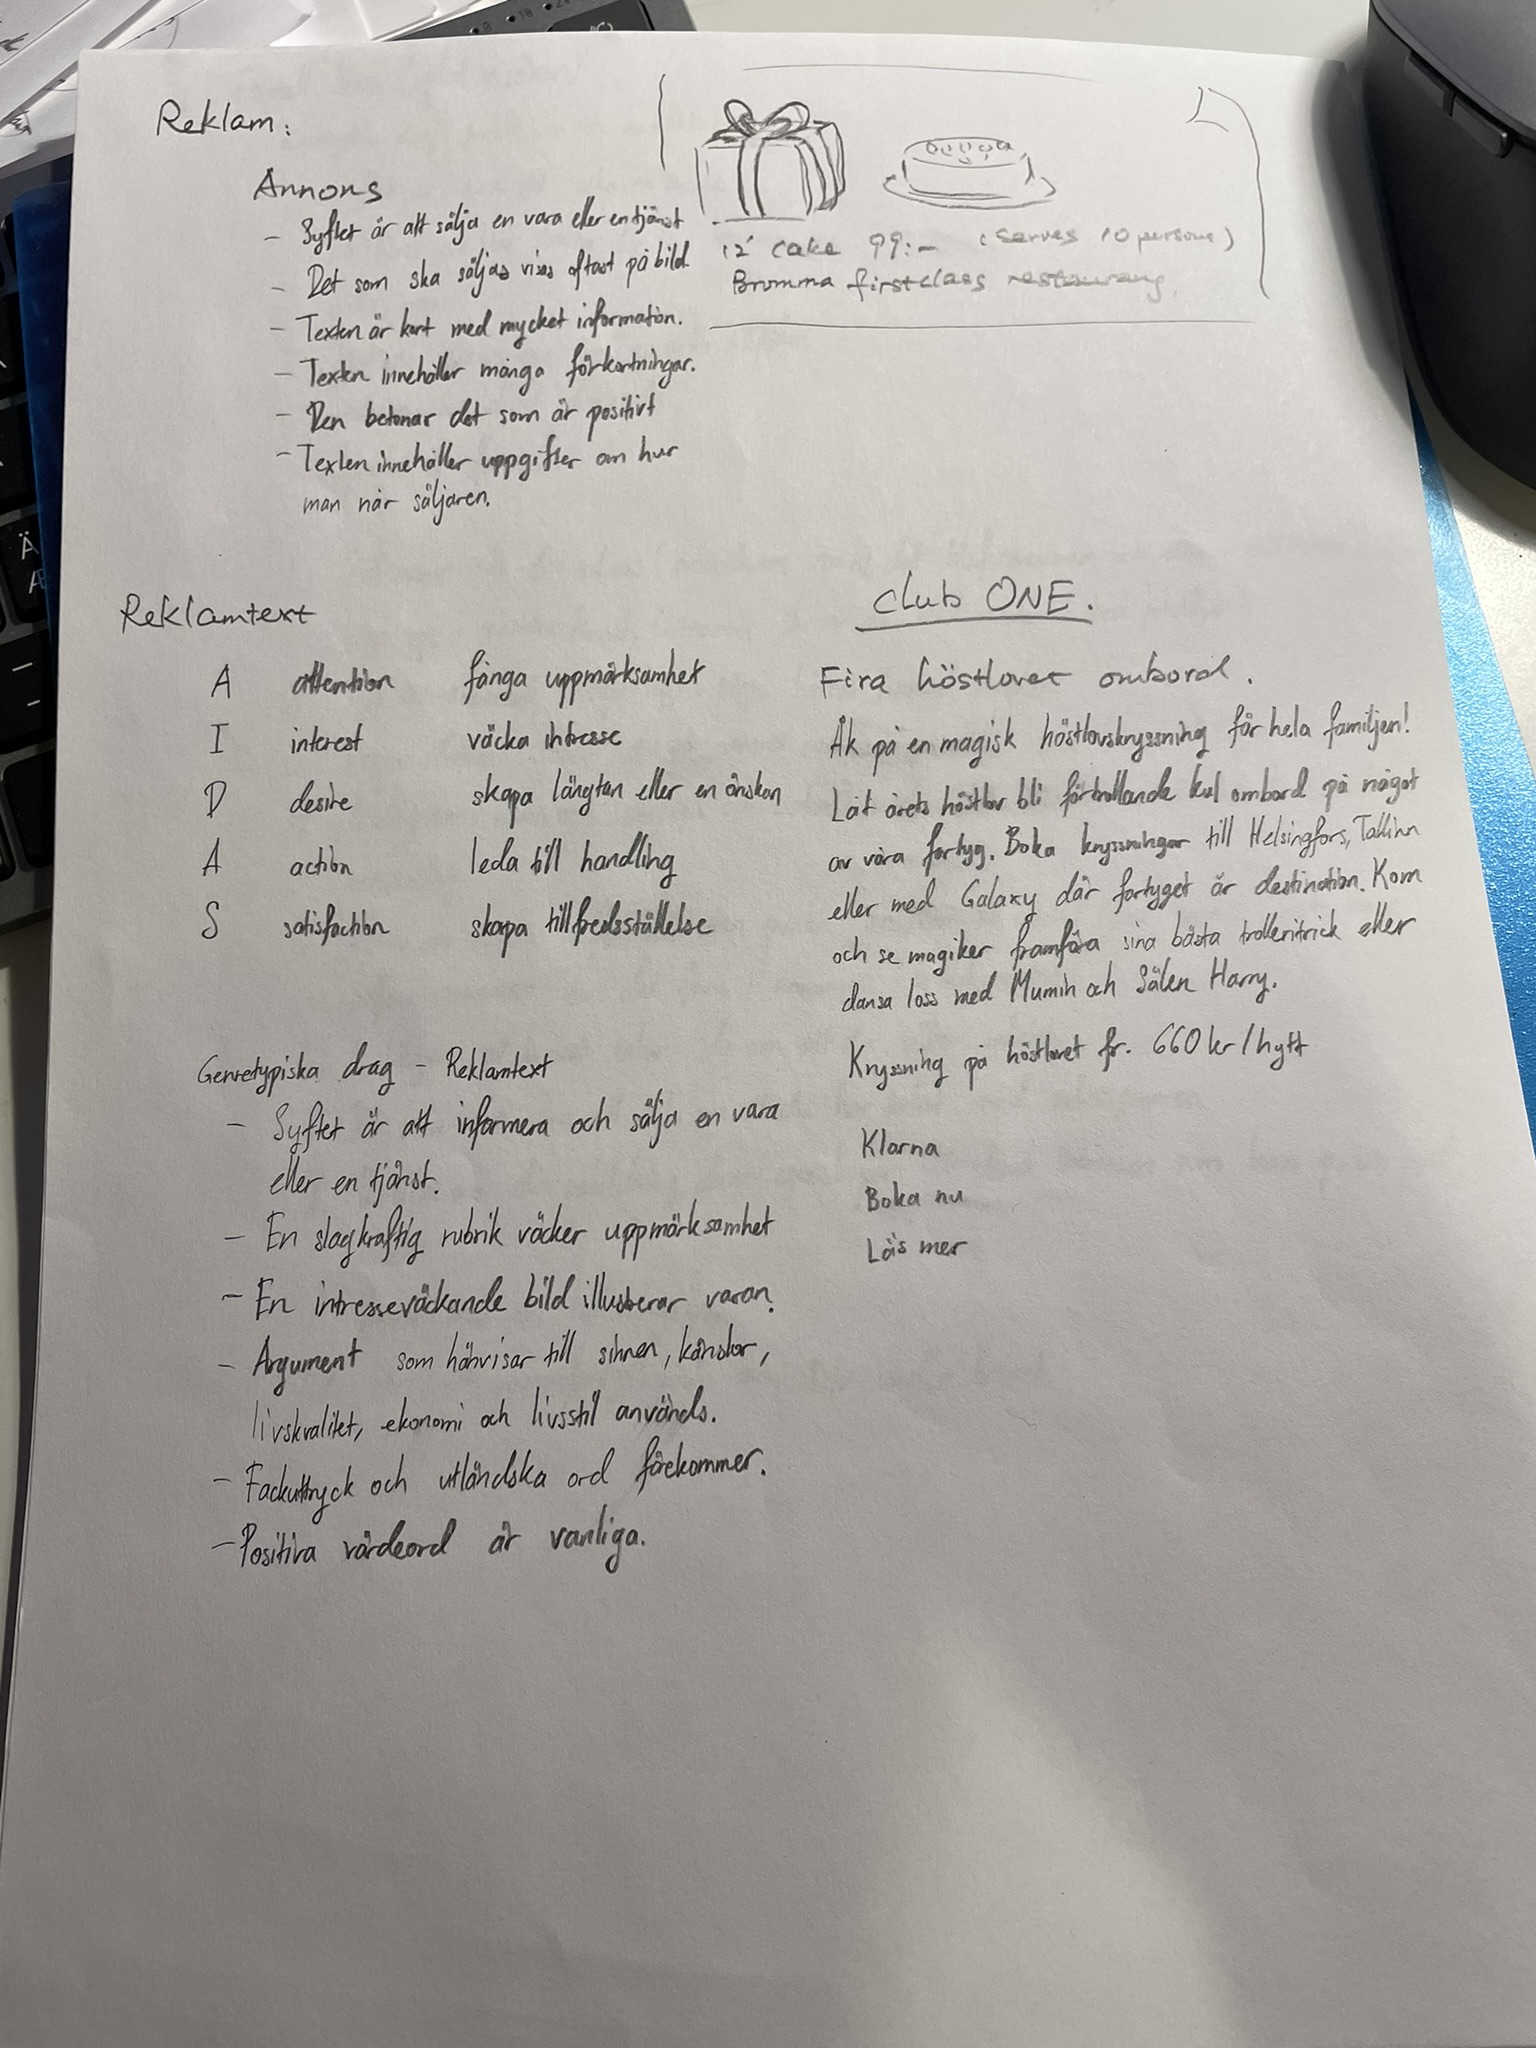 Reklam:
Annons
- Syftet är att sälja en vara eller en tjänst
- Det som ska säljas visas oftast på bild
- Texten är kort med mycket information.
- Texten innehåller många förkortningar.
- Den betonar det som är positivt
- Texten innehåller uppgifter om hur
man når säljaren.
12" cake 99:- (serves 10 persons)
Bromma firstclass restaurang.
Reklamtext
A attention fånga uppmärksamhet
I interest väcka intresse
D desire skapa längtan eller en önskan
A action leda till handling
S satisfaction skapa tillfredsställelse
Genretypiska drag - Reklamtext
- Syftet är att informera och sälja en vara
eller en tjänst.
- En slagkraftig rubrik väcker uppmärksamhet
- En intresseväckande bild illustrerar varan.
- Argument som hänvisar till sinnen, känslor,
livskvalitet, ekonomi och livsstil används.
- Fackuttryck och utländska ord förekommer.
- Positiva värdeord är vanliga.
club ONE.
Fira höstlovet ombord.
Åk på en magisk höstlovskryssning för hela familjen!
Låt årets höstlov bli förtrollande kul ombord på något
av våra fartyg. Boka kryssningar till Helsingfors, Tallinn
eller med Galaxy där fartyget är destination. Kom
och se magiker framföra sina bästa trolleritrick eller
dansa loss med Mumin och Sälen Harry.
Kryssning på höstlovet fr. 660 kr/hytt
Klarna
Boka nu
Läs mer